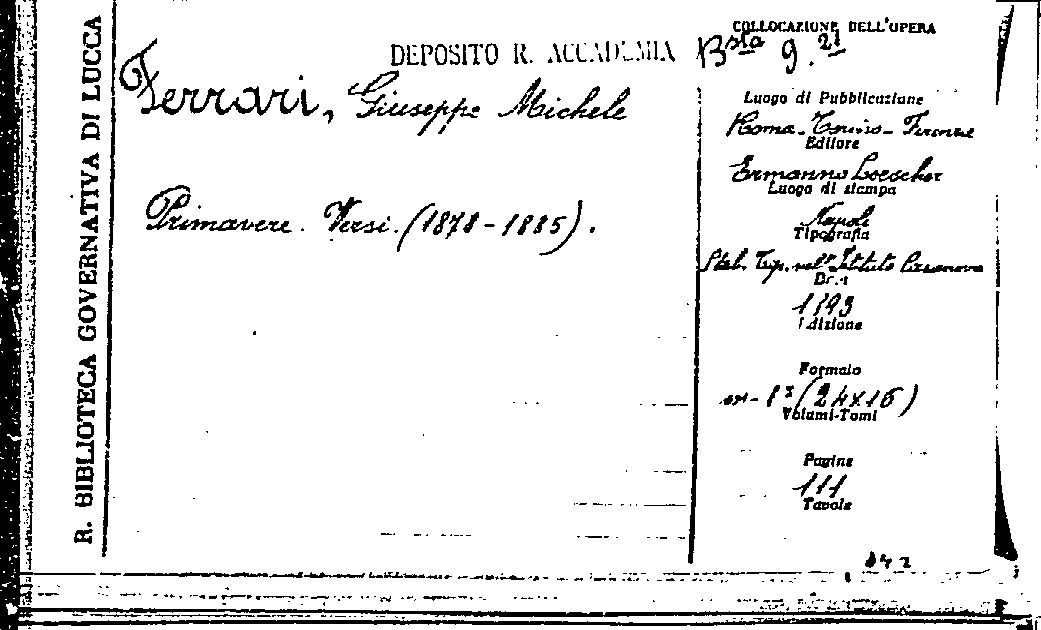 R. BIBLIOTECA GOVERNATIVA DI LUCCA
DEPOSITO R. ACCADEMIA
COLLOCAZIONE DELL'OPERA
Bsta 9. 21
Ferrari, Giuseppe Michele
Primavere. Versi. (1878-1885).
Luogo di Pubblicazione
Roma-Torino-Firenze
Editore
Ermanno Loescher
Luogo di stampa
Napoli
Tipografia
Stab. Tip. nell' Istituto Casanova
Data
1893
Edizione
Formato
in-8° (24x16)
Volumi-Tomi
Pagine
111
Tavole